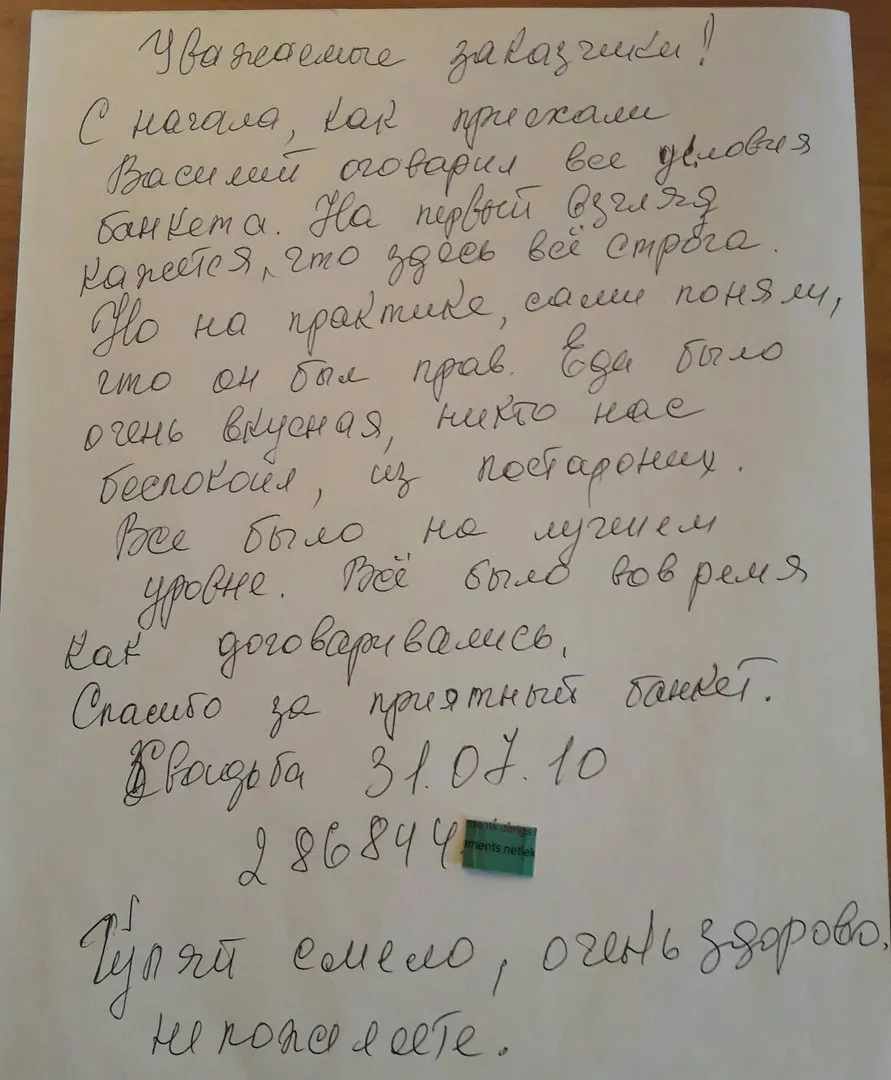 Уважаемые заказчики!
С начала, как приехали
Василий оговарил все условия
банкета. На первый взгляд
кажется, что здесь всё строга.
Но на практике, сами поняли,
что он был прав. Еда было
очень вкусная, никто нас
беспокоил, из постароних.
Все было на лучшем
уровне. Всё было вовремя
как договаривались.
Спасибо за приятный банкет.
Свадьба 31.07.10
286844
ments derīgs
aments netiek
смело, очень здорово,
не пожалеете.